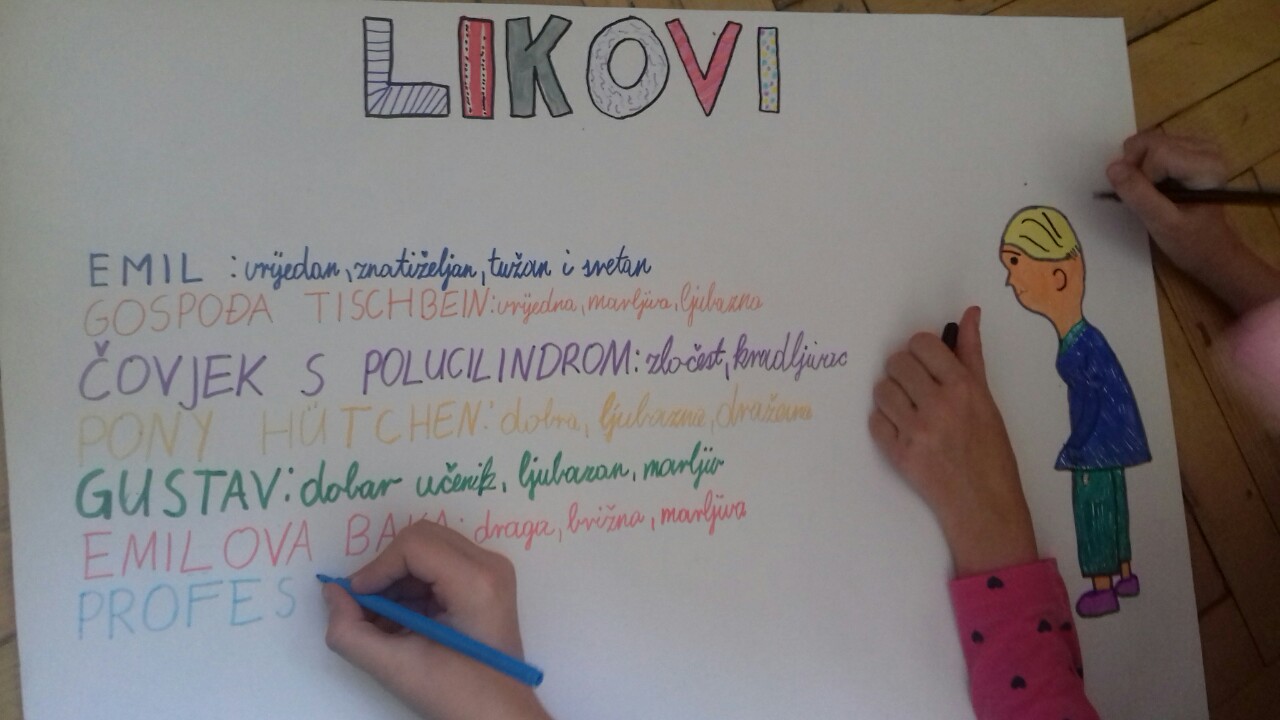 LIKOVI
EMIL : vrijedan, znatiželjan, tužan i sretan
GOSPOĐA TISCHBEIN: vrijedna, marljiva, ljubazna
ČOVJEK S POLUCILINDROM: zločest, kradljivac
PONY HÜTCHEN: dobra, ljubazna, dražesna
GUSTAV: dobar učenik, ljubazan, marljiv
EMILOVA BAKA: draga, brižna, marljiva
PROFES